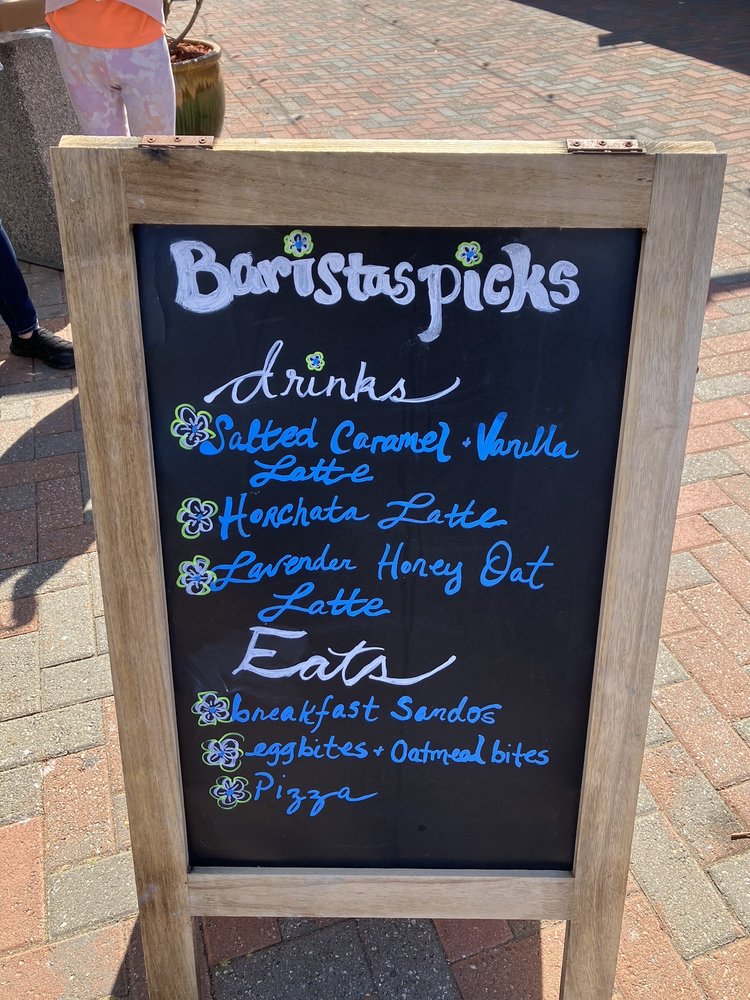 Baristas picks
drinks
Salted Caramel + Vanilla
Latte
Horchata Latte
Lavender Honey Oat
Latte
Eats
breakfast Sandos
eggbites + Oatmeal bites
Pizza